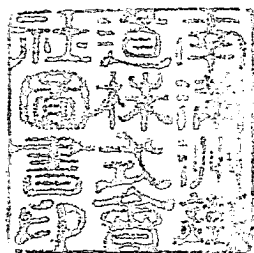 南滿洲鐵
道株式會
社圖書印